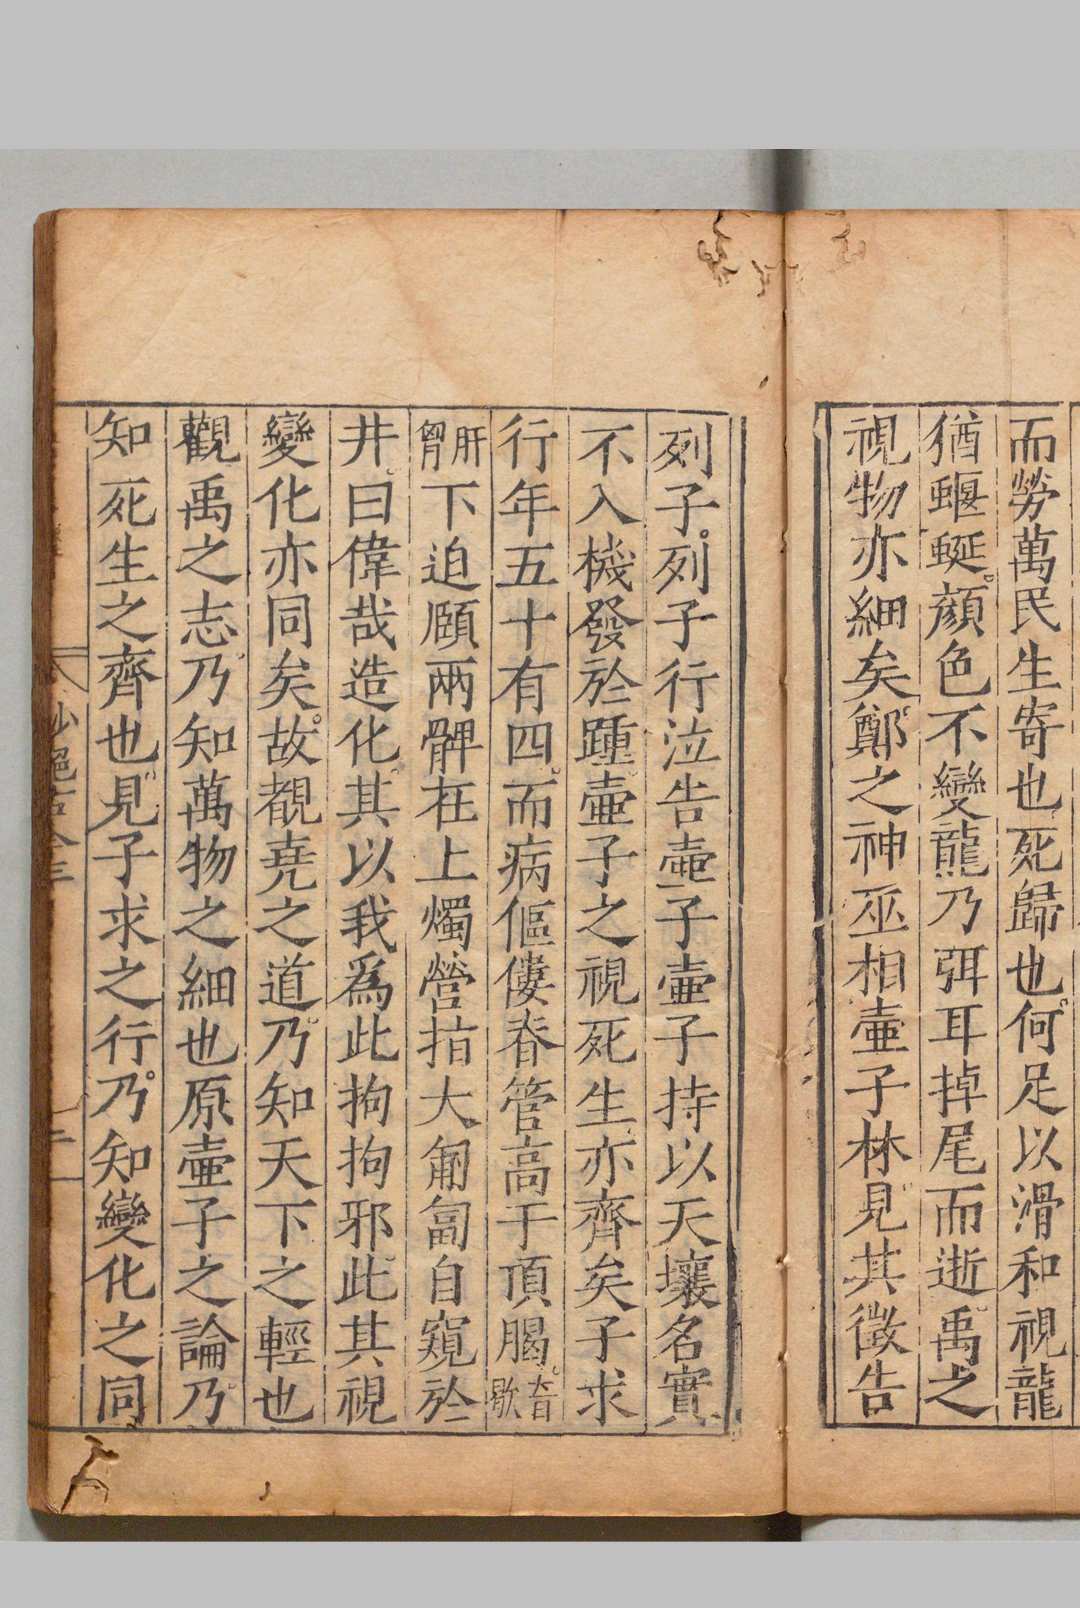 而勞萬民生寄也死歸也何足以滑和視龍
猶蝘蜒顏色不變龍乃弭耳掉尾而逝禹之
視物亦細矣鄭之神巫相壷子林見其徵告
列子列子行泣告壷子壷子持以天壤名實
不入機發於踵壷子之視死生亦齊矣子求
行年五十有四而病傴僂脊管高于頂𦞦音歇
肝胷下迫頤兩髀在上燭營指大匍匐自窺於
井曰偉哉造化其以我為此拘拘邪此其視
變化亦同矣故覩堯之道乃知天下之輕也
觀禹之志乃知萬物之細也原壷子之論乃
知死生之齊也見子求之行乃知變化之同